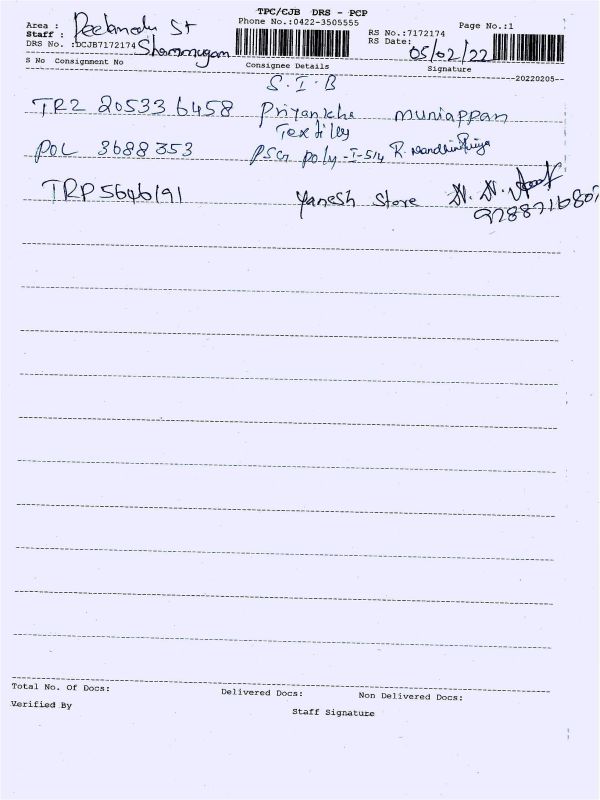 TPC/CJB DRS - PCP
Phone No.:0422-3505555
RS No.:7172174
Page No.:1
Area : Peelamedu St
Staff : Shanmugam
DRS No. :DCJB7172174
RS Date: 05/02/22
S No Consignment No Consignee Details Signature
--20220205--
S.I.B
TRZ 205336458 Priyankha Muniappan
Textiles
POL 3688353 PSG poly -I-514 R. Nandhini Priya
TRP 5646191 Yanesh Store
9788716807
Total No. Of Docs: Delivered Docs: Non Delivered Docs:
Verified By Staff Signature